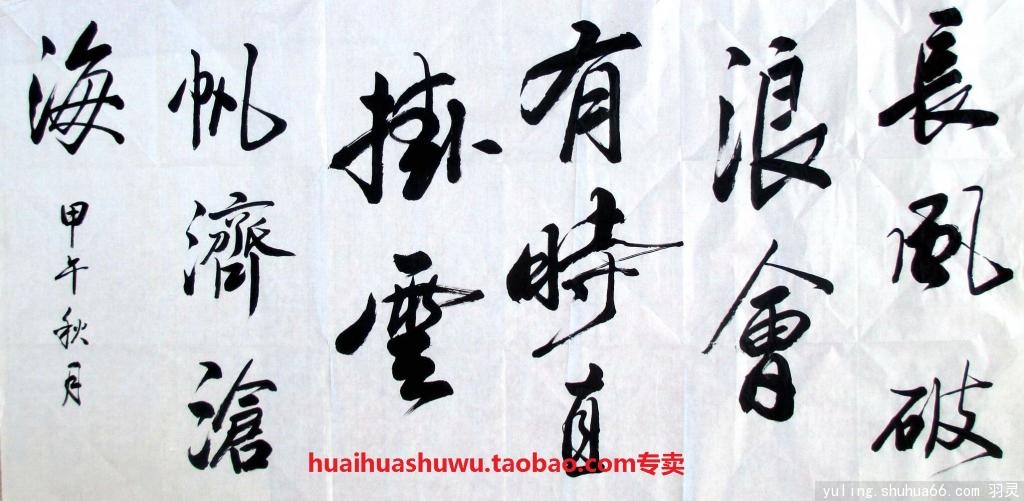 長風破
浪會
有時直
掛雲
帆濟滄
海
甲午秋月
huaihuashuwu.taobao.com专卖
yuling.shuhua66.com 羽灵